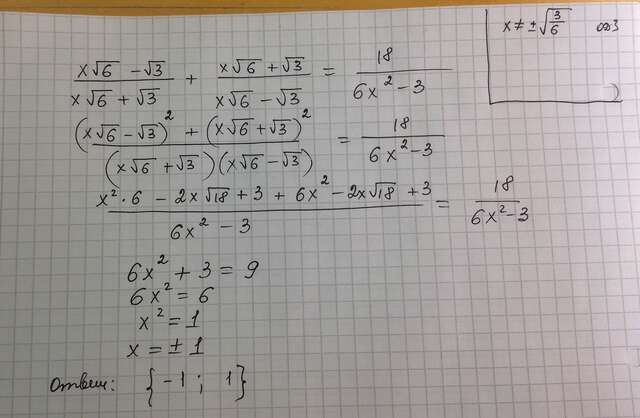 x ≠ ±√(3/6) одз
(x√6 − √3)/(x√6 + √3) + (x√6 + √3)/(x√6 − √3) = 18/(6x² − 3)
((x√6 − √3)² + (x√6 + √3)²)/((x√6 + √3)(x√6 − √3)) = 18/(6x² − 3)
(x²·6 − 2x√18 + 3 + 6x² − 2x√18 + 3)/(6x² − 3) = 18/(6x² − 3)
6x² + 3 = 9
6x² = 6
x² = 1
x = ± 1
Ответ: {−1 ; 1}